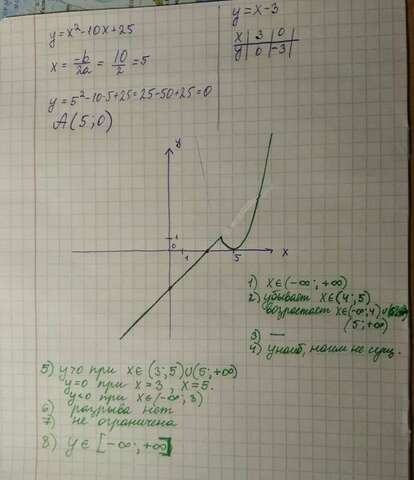 y=x²-10x+25
x = -b/2a = 10/2 = 5
y=5²-10·5+25=25-50+25=0
A(5;0)
y=x-3
x | 3 | 0
y | 0 | -3
y
1
0
1
5
x
1) x∈(-∞;+∞)
2) убывает x∈(4;5)
возрастает x∈(-∞;4)∪
(5;+∞)
3) —
4) унаиб, наим не сущ.
5) y>0 при x∈(3;5)∪(5;+∞)
y=0 при x=3, x=5.
y<0 при x∈(-∞;3)
6) разрыва нет
7) не ограничена
8) y∈[-∞;+∞]